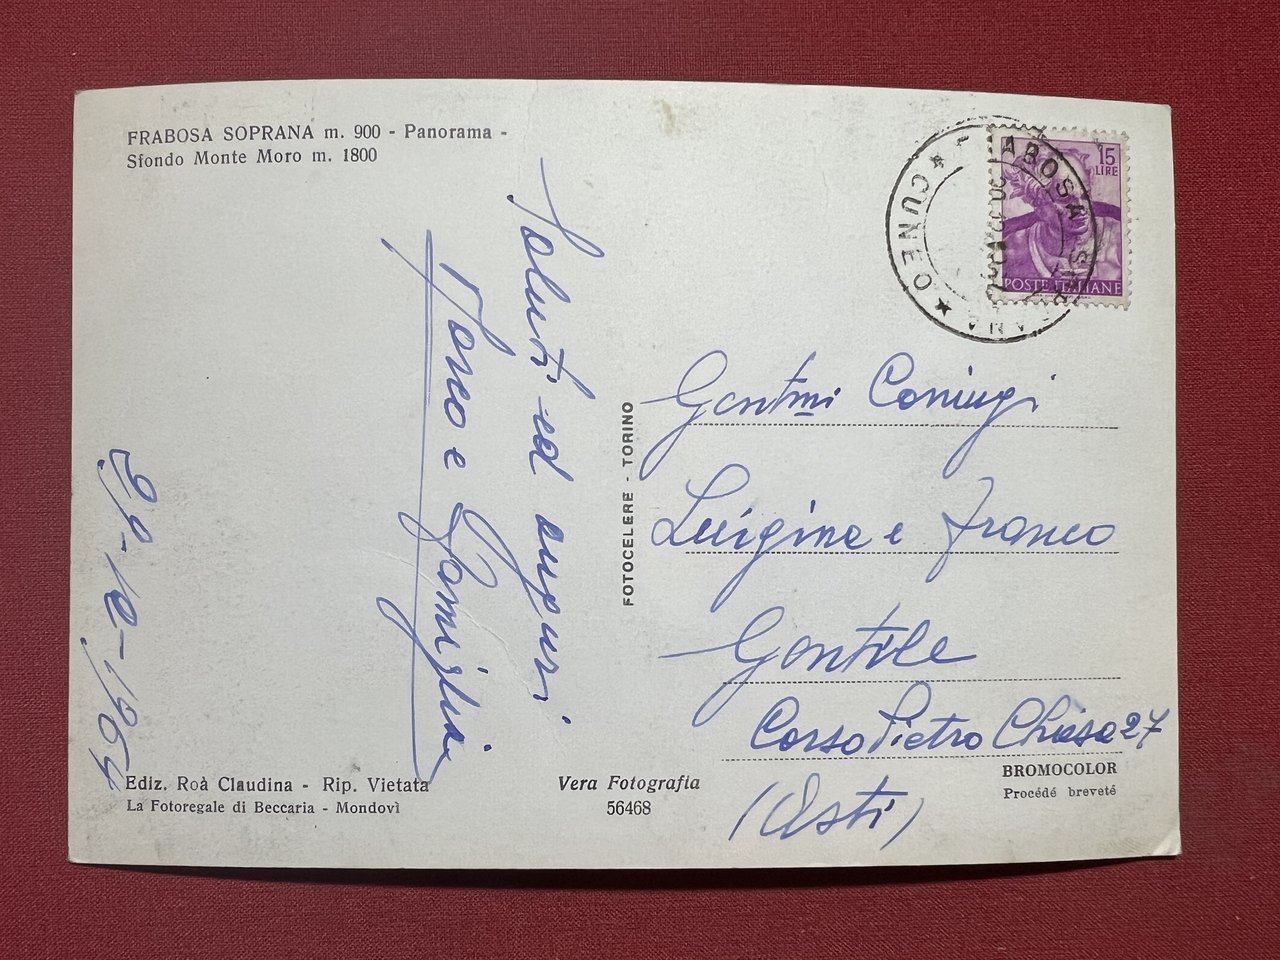 FRABOSA SOPRANA m. 900 - Panorama -
Sfondo Monte Moro m. 1800
Saluti ed auguri
e Famiglia
29-12-1964
FOTOCELERE - TORINO
15
LIRE
POSTE ITALIANE
CUNEO
Gentmi Coniugi
Luigina e Franco
Gentile
Corso Pietro Chiesa 27
(Asti)
Ediz. Roà Claudina - Rip. Vietata
La Fotoregale di Beccaria - Mondovì
Vera Fotografia
56468
BROMOCOLOR
Procédé breveté